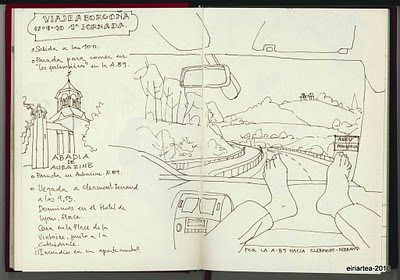 VIAJE A BORGOÑA
12-9-10 1ª JORNADA.
• Salida a las 10 h.
• Parada para comer en
"les palombières" en la A.89.
ABADIA
DE
AUBAZINE
• Parada en Aubazine. N.89.
• Llegada a Clermont Ferrand
a las 9,15.
Dormimos en el Hotel de
Lyon, Place.
Cara a la Place de la
Victoire, junto a la
Cathédrale.
¡¡Incendio en un apartamento!!
AQEU
POR LA A-89 HACIA CLERMONT-FERRAND
eiriartea-2010